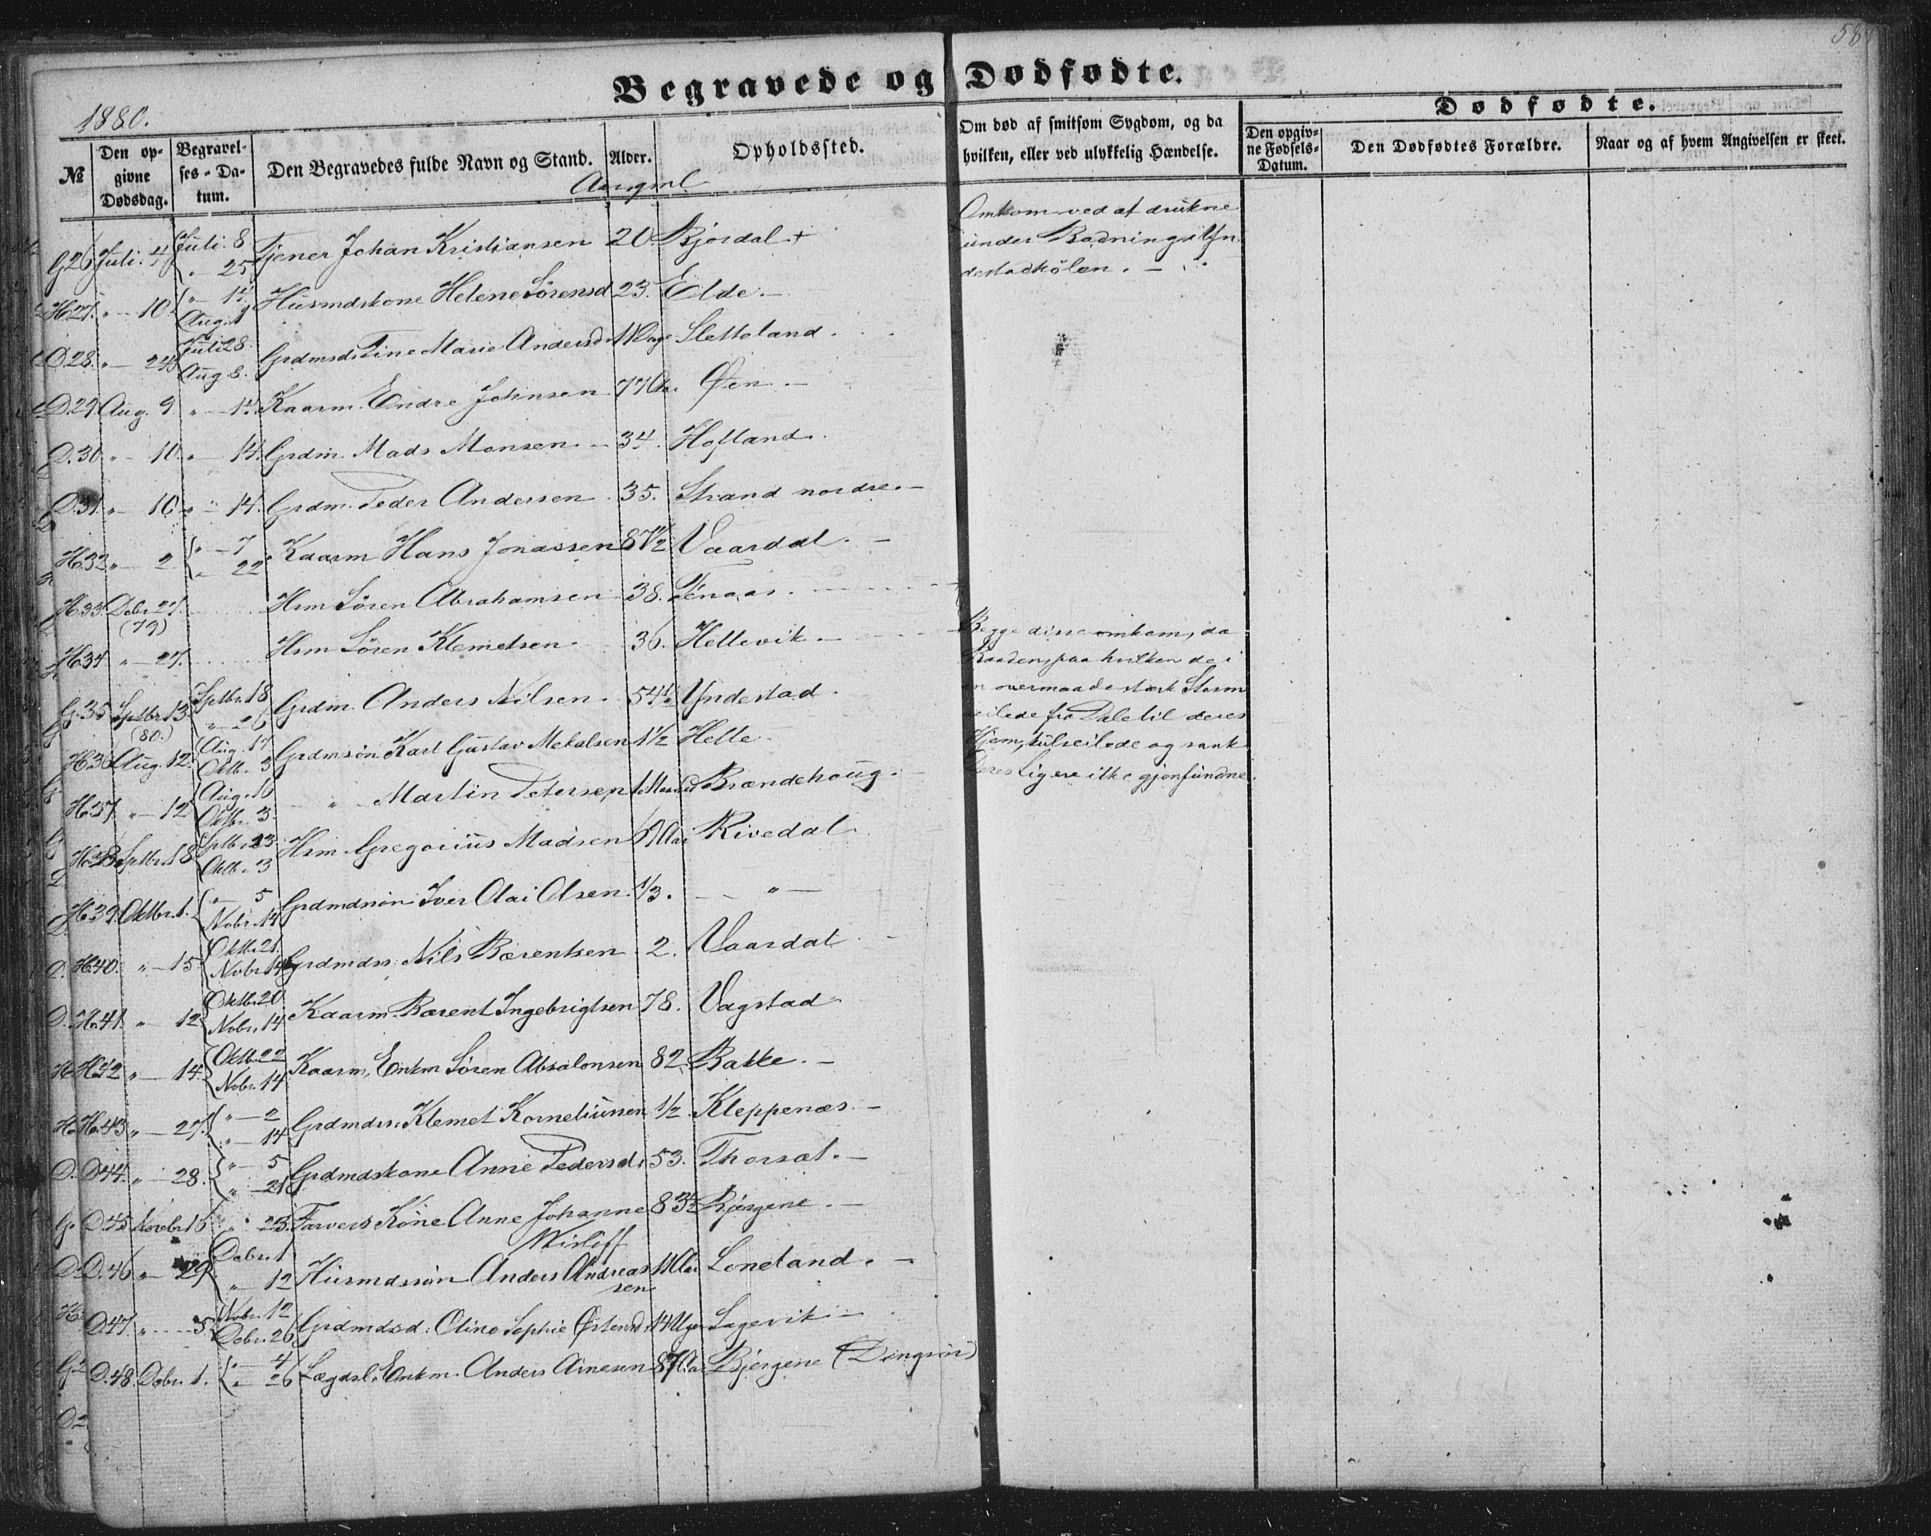 584
Begravede og Dødfødte.
1880.
№
Den op-
givne
Dødsdag.
Begravel-
ses-Da-
tum.
Den Begravedes fulde Navn og Stand.
Alder.
Opholdssted.
Om død af smitsom Sygdom, og da
hvilken, eller ved ulykkelig Hændelse.
Dødfødte.
Den opgiv-
ne Fødsels-
Datum.
Den Dødfødtes Forældre.
Naar og af hvem Angivelsen er skeet.
G26 Juli 4 Juli 8 " 25 Tjener Johan Kristiansen 20 Bjordal + Omkom ved at drukne
under Badning i
H27 " - 10 " - 14 Aug. 1 Husmdskone Helene Sørensd 23. Elde. -
D28. " - 24 Juli 28. Aug 8. Grdmsd: Tine Marie Andersd 11 Dage Sletteland.
D.29. Aug. 9 " - 14. Kaarm. Endre Johnsen 77 Aar. Øen -
D.30. " - 10. " - 14. Grdm. Mads Monsen. - 34. Hofland.
D.31. " - 10 " - 14. Grdm. Peder Andersen. 35. Strand nordre. -
H.32. " - 2. " - 7 " 22 Kaarm Hans Jonassen 87 1/2 Vaardal. -
H.33. Debr. 27. (79) Hsm Søren Abrahamsen 38.
H.34 " - 27. Hsm Søren Klemetsen 36. Hellevik. - Begge disse omkom, da
Baaden, paa hvilken de i
en overmaade stærk Storm
seilede fra Dale til deres
Hjem, kulseilede og sank.
Deres Lig ere ikke gjenfundne.
G.35 Septbr. 13. (80.) Septbr. 18 " 26 Grdm. Anders Nilsen. 54 1/2 Yndestad.
H.36 Aug. 12. Aug. 17 Oktb. 3 Grdmsøn Karl Gustav Mekalsen 1 1/2 Helle -
H.37. " - 12 Aug. Oktb. 3. - " - Martin Petersen 1 Maaned Brændehoug. -
H.38 Septbr. 18 Septbr. 23. Oktb. 3 Hsm Gregorius Madsen 69 Aar Rivedal.
H.39. Oktbr. 1. " - 5 Nobr. 14 Grdmdsøn Iver Olai Olsen. 1/3. - " -
H.40. " - 15. Oktb. 21. Nobr. 14 Grdmdss: Nils Bærentsen 2. Vaardal
H.41. " - 12. Oktb. 20. Nobr. 14 Kaarm. Bærent Ingebrigtsen 78. Vagstad
H.42 " - 14. Oktb. 22 Nobr. 14 Kaarm, Enkm Søren Absalonsen 82. Bakke. -
H.43. " - 27. " - 2 " - 14 Grdmdss: Klemet Korneliussen 1/2. Kleppenæs. -
D.44. " - 28. " - 5 " - 21 Grdmdskone Anne Pedersd: 53. Thorsal. -
D.45 Novbr. 16 " 23. Farvers Kone Anne Johanne 83 1/2 Bjergene. -
D.46. " - 29 Debr. 1 " - 12 Husmdssøn Anders Andreas
sen 11 Aar Loneland. -
D.47. " - 5. Nobr. 12 Debr. 26 Grdmdsd: Oline Sophie Østensd: 14 Uger Lagevik -
D.48. Debr. 1. " - 4 " - 26 Lægdsl. Enkm. Anders Arnesen 87 Aar Bjergene (Dingsør)